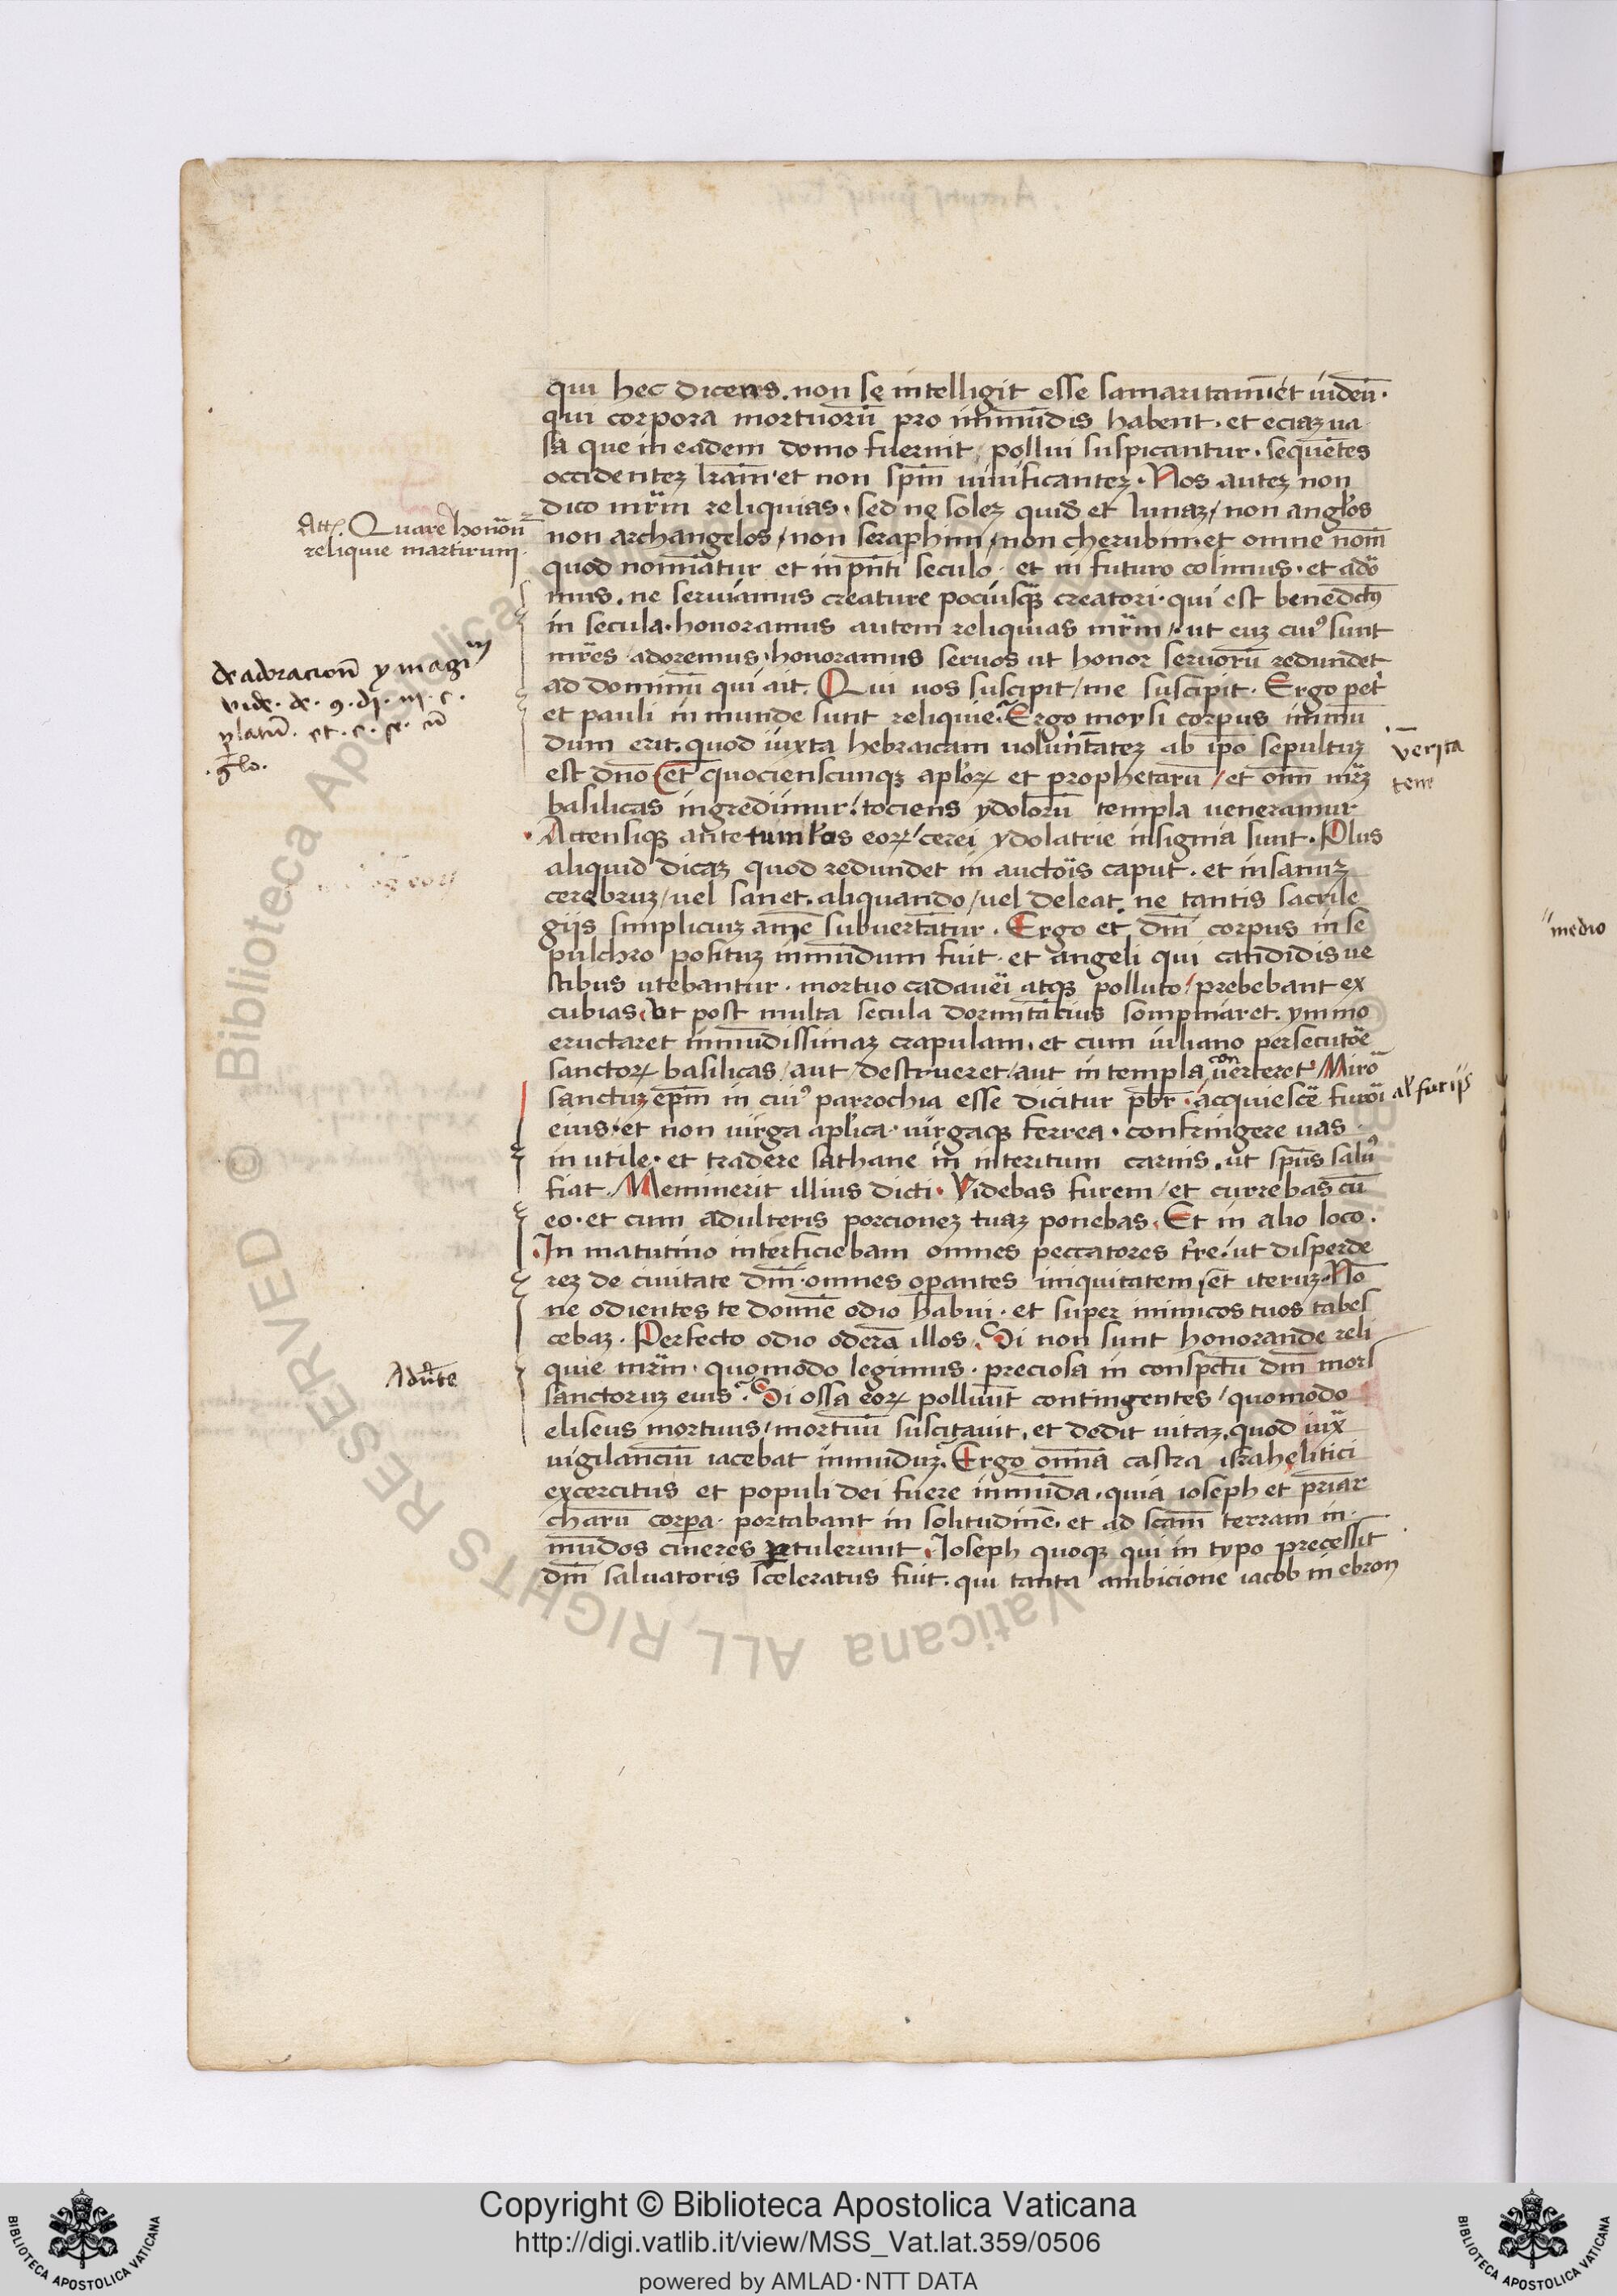 qui hec dicens. non se intelligit esse samaritanū et iudeū.
qui corpora mortuorū pro inmūdis habent. et eciaʒ ua
sa que in eadem domo fuerint / pollui suspicantur. sequētes
occidenteʒ lr̄am. et non sp̄m uiuificanteʒ. Nos auteʒ non
dico mr̄m reliquias. sed ne soleʒ quid̄ et lunaʒ / non angl̓os
non archangelos / non seraphim / non cherubim. et omne nom̄
quod nominatur et in pn̄ti seculo. et in futuro colimus. et ado
mus. ne seruiamus creature pociusqꝫ creatori. qui est benedictꝰ
in secula. honoramus autem reliquias mr̄m / ut euʒ cuiꝰ sunt
mr̄es adoremus. honoramus seruos ut honor seruorū redundet
ad dominū qui ait. Qui uos suscipit / me suscipit. Ergo petr̓
et pauli in munde sunt reliquie. Ergo moysi corpus inmū
dum erit. quod iuxta hebraicam uoluntateʒ ab ip̄o sepultuʒ
est dn̄o et quocienscunqꝫ apl̓oꝝ et prophetarū / et oīm mr̄ʒ
basilicas ingredimur. tociens ydolorū templa ueneramur
Accensiqꝫ ante tumlos eoꝝ / cerei ydolatrie insignia sunt. Plus
aliquid dicaʒ quod redundet in auctoīs caput. et insanuʒ
cerebruʒ / uel sanet. aliquando / uel deleat. ne tantis sacrile
giis simpliciuʒ aīme subuertātur. Ergo et dn̄i corpus in se
pulchro posituʒ inmūdum fuit. et angeli qui candidis ue
stibus utebantur. mortuo cadaueri atqꝫ polluto / prebebant ex
cubias. ut post multa secula dormitācius sompniaret. ymmo
eructaret inmūdissimaʒ crapulam. et cum iuliano persecutoē
sanctoꝝ basilicas / aut destrueret / aut in templa conuerteret. Miro
sanctuʒ ep̄m in cuiꝰ parrochia esse dicitur pr̄br. acquiescē furori
eius. et non uirga apl̓ica. uirgaqꝫ ferrea. confringere uas
in utile. et tradere sathane in interitum carnis. ut sp̄us saluꝰ
fiat. Meminerit illius dicti. Videbas furem / et currebas cū
eo. et cum adulteris porcioneʒ tuaʒ ponebas. Et in alio loco.
In matutino interficiebam omnes peccatores tr̄e. ut disperde
reʒ de ciuitate dn̄i. omnes operantes iniquitatem. et iteruʒ. Nō
ne odientes te domīe odio habui. et super inimicos tuos tabes
cebaʒ. Perfecto odio oderā illos. Si non sunt honorande reli
quie mr̄m. quomodo legimus. preciosa in conspc̄tu dn̄i mors
sanctoruʒ eius. Si ossa eoꝝ polluūt contingentes / quomodo
eliseus mortuus / mortuū suscitauit. et dedit uitaʒ. quod iux̄
uigilanciū iacebat inmūduʒ. Ergo omnia castra israhelitici
excercitus et populi dei fuere inmūda. quia ioseph et pr̄iar
charū corpa. portabant in solitudinē. et ad sc̄am terram in
mūdos cineres ꝑtulerunt. Ioseph quoqꝫ qui in typo precessit
dn̄i saluatoris sceleratus fuit. qui tanta ambicione iacob in ebron
Quare honorn̄
reliquie martirum
de adoracion̄ ymagim
vide. de. 9. di. III. c.
platū. et. c. se. cū
.glo.
verita
tem
al̓ furiis
Aduerte
medio
Biblioteca Apostolica Vaticana ALL RIGHTS RESERVED ©
Copyright © Biblioteca Apostolica Vaticana
http://digi.vatlib.it/view/MSS_Vat.lat.359/0506
powered by AMLAD·NTT DATA
BIBLIOTECA APOSTOLICA VATICANA
BIBLIOTECA APOSTOLICA VATICANA